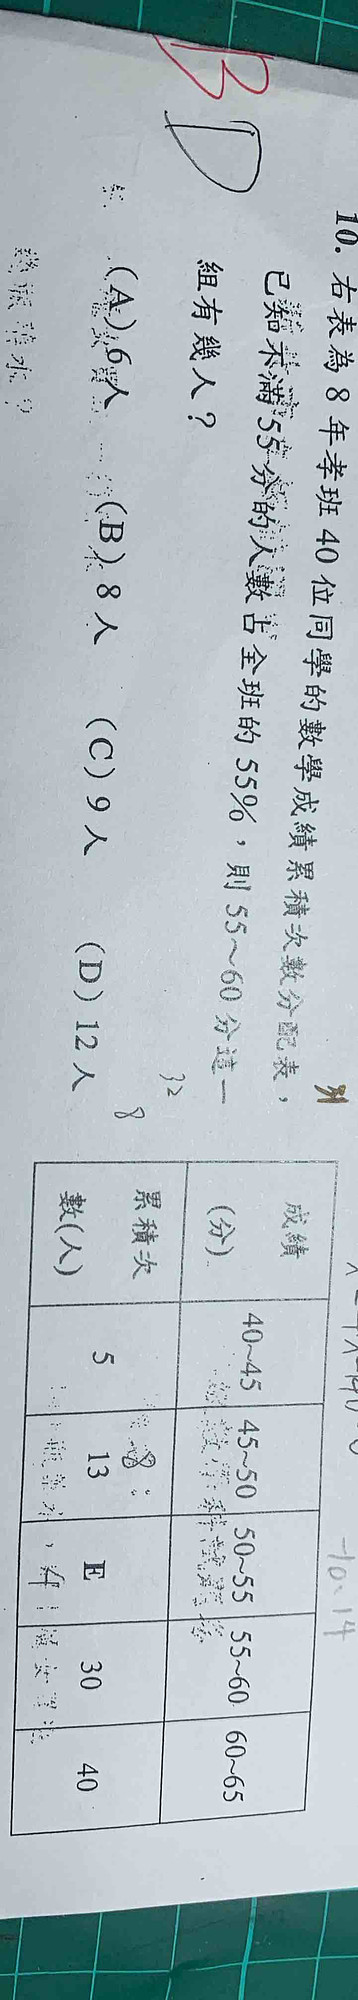 B
D
10. 右表為8年孝班40位同學的數學成績累積次數分配表，
已知不滿55分的人數占全班的55%，則55~60分這一
組有幾人？
(A) 6人 (B) 8人 (C) 9人 (D) 12人
32
8
成績(分) 40~45 45~50 50~55 55~60 60~65
累積次數(人) 5 13 E 30 40
8
-10、14